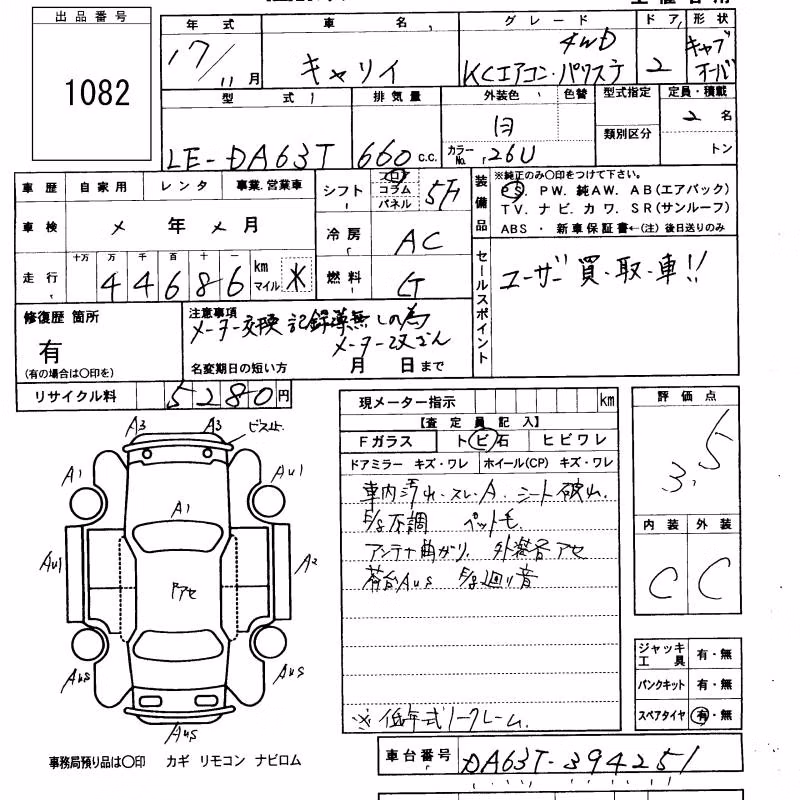 出品番号
1082
年式
17/11月
車名
キャリイ
グレード
4WD
KCエアコン・パワステ
ドア
2
形状
キャブ
オーバ
型式
LE-DA63T
排気量
660 c.c.
外装色
白
色替
カラーNo. 26U
型式指定
類別区分
定員・積載
2 名
トン
車歴 自家用 レンタ 事業.営業車
車検 × 年 × 月
走行 十万 万 千 百 十 一
44686 km マイル *
シフト フロア コラム パネル 5F
冷房 AC
燃料 G
装備品
※純正のみ○印をつけて下さい。
PS. PW. 純AW. AB(エアバック)
TV. ナビ. カワ. SR(サンルーフ)
ABS ・ 新車保証書←(注) 後日送りのみ
セールスポイント
ユーザー買・取・車!!
修復歴 箇所
有
(有の場合は○印を)
注意事項
メーター交換 記録簿無しの為
メーター改ざん
名変期日の短い方 月 日まで
リサイクル料 5280円
現メーター指示 km
【査定員記入】
Fガラス トビ石 ヒビワレ
ドアミラー キズ・ワレ ホイール(CP) キズ・ワレ
車内汚れ.スレ.A. シート破れ.
不調 ペット毛.
アンテナ曲がり. 外装各アセ
荷台AUS 廻り音
※低年式ノークレーム.
評価点
3.5
内装 外装
C C
A3 A3 ビス止.
A1 AU1
A1
AU1 A2
ドアセ
AUS AUS
AUS
ジャッキ工具 有・無
パンクキット 有・無
スペアタイヤ 有・無
事務局預り品は○印 カギ リモコン ナビロム
車台番号 DA63T-394251